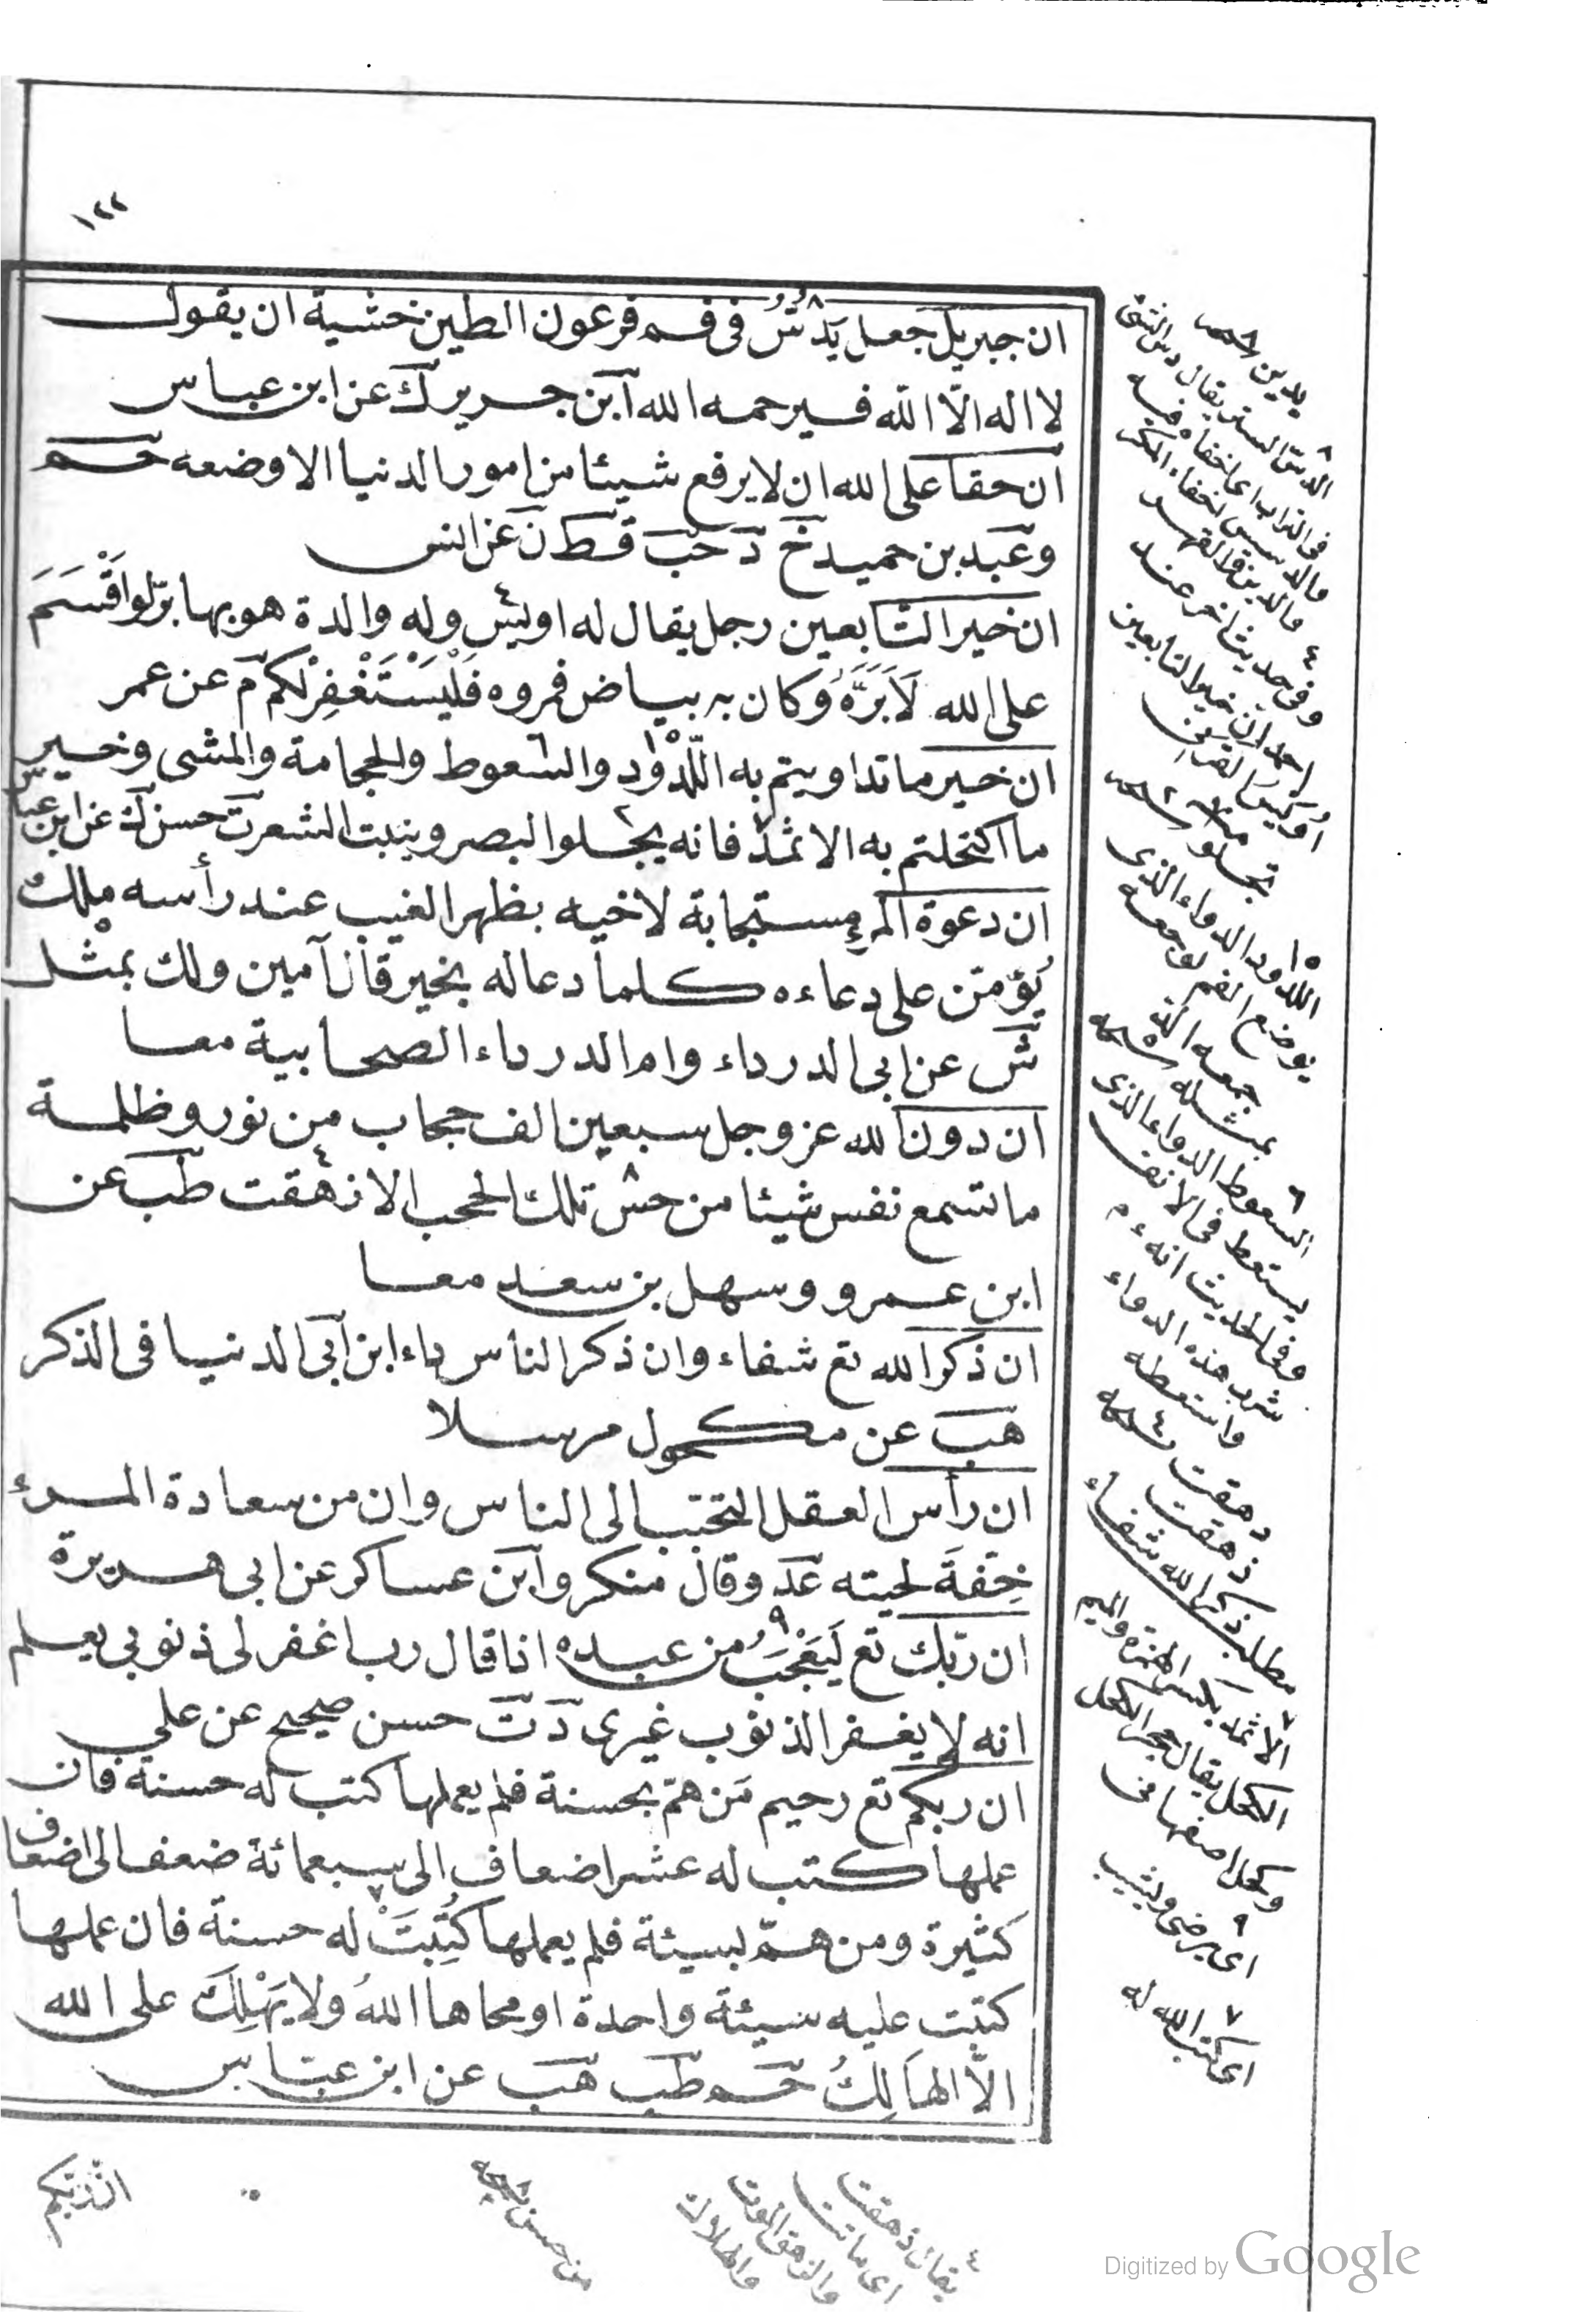 ١٢٢
ان جبريل جعل يَدُسُّ فى فم فرعون الطين خشية ان يقول
لا اله الّا الله فيرحمه الله ابن جرير ك عن ابن عباس
ان حقا على الله ان لا يرفع شيئا من امور الدنيا الا وضعه حم
وعبد بن حميد خ د حب قط ن عن انس
ان خير التابعين رجل يقال له اويس وله والدة هو بها برّ لو اَقْسَمَ
على الله لَاَبَرَّهُ وكان به بياض فمروه فَلْيَسْتَغْفِرْ لكم م عن عمر
ان خير ما تداويتم به اللَّدُود والسعوط والحجامة والمشى وخير
ما اكتحلتم به الاثمد فانه يجلوا البصر وينبت الشعر ت حسن ك عن ابن عباس
ان دعوة المرء مستجابة لاخيه بظهر الغيب عند رأسه ملك
يُؤمّن على دعاءه كلما دعا له بخير قال آمين ولك بمثل
ش عن ابى الدرداء وام الدرداء الصحابية معا
ان دون الله عز وجل سبعين الف حجاب من نور وظلمة
ما تسمع نفس شيئا من حس تلك الحجب الا زهقت طب عن
ابن عمرو وسهل بن سعد معا
ان ذكر الله تع شفاء وان ذكر الناس داء ابن ابى الدنيا فى الذكر
هب عن مكحول مرسلا
ان رأس العقل التحبّب الى الناس وان من سعادة المرء
خِفّةَ لحيته عد وقال منكر وابن عساكر عن ابى هريرة
ان ربّك تع لَيَعْجَبُ من عبده اذا قال رب اغفر لى ذنوبى يعلم
انه لا يغفر الذنوب غيرى د ت حسن صحيح عن على
ان ربكم تع رحيم مَن همّ بحسنة فلم يعملها كتب له حسنة فان
عملها كتب له عشر اضعاف الى سبعمائة ضعف الى اضعاف
كثيرة ومن همّ بسيئة فلم يعملها كُتِبَتْ له حسنة فان عملها
كتبت عليه سيئة واحدة او محاها اللهُ ولا يَهْلِكَ على الله
الّا الهَالِكُ حم طب هب عن ابن عباس
الدسّ الستر يقال دس الشئ
فى التراب اى اخفاه فيه
وفى حديث اخر عند
احمد ان خير التابعين
اُويس القرنى
اللدود الدواء الذى
يوضع الفم لوجعه
السعوط الدواء الذى
يستعط فى الانف
وفى الحديث انه
شرب هذه الدواء
واستعطه
مطلب ذكر الله شفاء
الاثمد بكسر الهمزة والميم
الكحل يقال حجر الكحل
وكحل اصفهانى
٩ اى يرضى ويثيب
٧ اى كتب الله له
٤ يقال زهقت
اى ماتت
ان ربكم
Digitized by Google